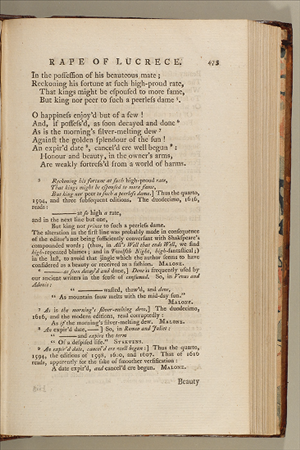 RAPE OF LUCRECE. 475
In the possession of his beauteous mate;
Reckoning his fortune at such high-proud rate,
That kings might be espoused to more fame,
But king nor peer to such a peerless dame ¹.
O happiness enjoy'd but of a few!
And, if possess'd, as soon decayed and done ²
As is the morning's silver-melting dew ³
Against the golden splendour of the sun!
An expir'd date ⁴, cancel'd ere well begun ⁵:
Honour and beauty, in the owner's arms,
Are weakly fortress'd from a world of harms.
Reckoning his fortune at such high-proud rate,
That kings might be espoused to more fame,
But king nor peer to such a peerless dame.] Thus the quarto,
1594, and three subsequent editions. The duodecimo, 1616,
reads:
——— at so high a rate,
and in the next line but one,
But king nor prince to such a peerless dame.
The alteration in the first line was probably made in consequence
of the editor's not being sufficiently conversant with Shakspeare's
compounded words; (thus, in All's Well that ends Well, we find
high-repented blames; and in Twelfth Night, high-fantastical;)
in the last, to avoid that jingle which the author seems to have
considered as a beauty or received as a fashion. MALONE.
——— as soon decay'd and done,] Done is frequently used by
our ancient writers in the sense of consumed. So, in Venus and
Adonis:
" ——— wasted, thaw'd, and done,
" As mountain snow melts with the mid-day sun."
MALONE.
³ As is the morning's silver-melting dew,] The duodecimo,
1616, and the modern editions, read corruptedly:
As if the morning's silver-melting dew. MALONE.
An expir'd date, ——] So, in Romeo and Juliet:
" ——— and expire the term
" Of a despised life." STEEVENS.
An expir'd date, cancel'd ere well begun:] Thus the quarto,
1594, the editions of 1598, 1600, and 1607. That of 1616
reads, apparently for the sake of smoother versification:
A date expir'd, and cancel'd ere begun. MALONE.
Beauty